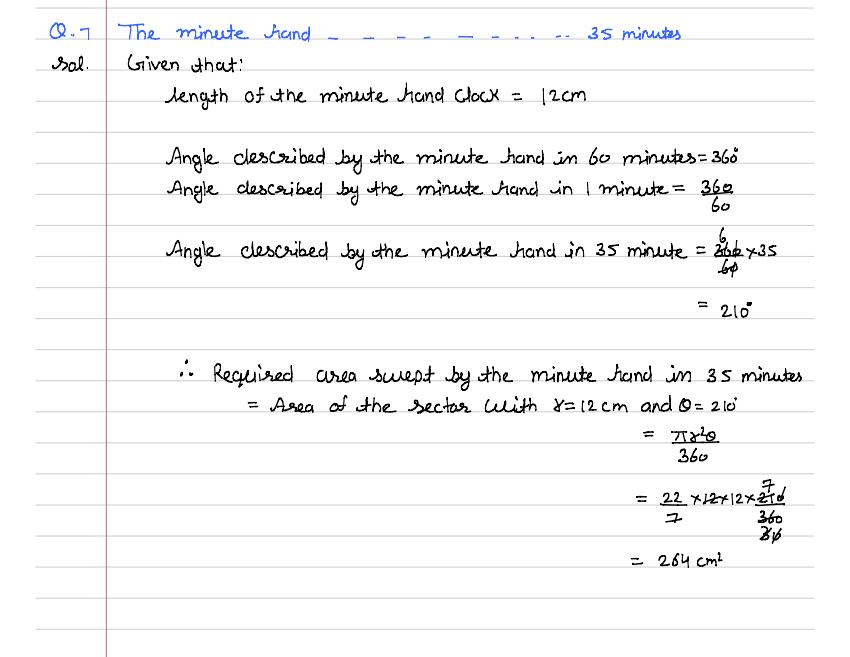 Q.7 The minute hand _ _ _ _ _ _ _ _ _ _ 35 minutes
Sol. Given that:
length of the minute hand clock = 12cm
Angle described by the minute hand in 60 minutes = 360°
Angle described by the minute hand in 1 minute = 360/60
Angle described by the minute hand in 35 minute = 360/60 × 35 6
= 210°
∴ Required area swept by the minute hand in 35 minutes
= Area of the sector with r=12cm and θ=210°
= πr²θ/360
= 22/7 × 12 × 12 × 210/360 7 36
= 264 cm²